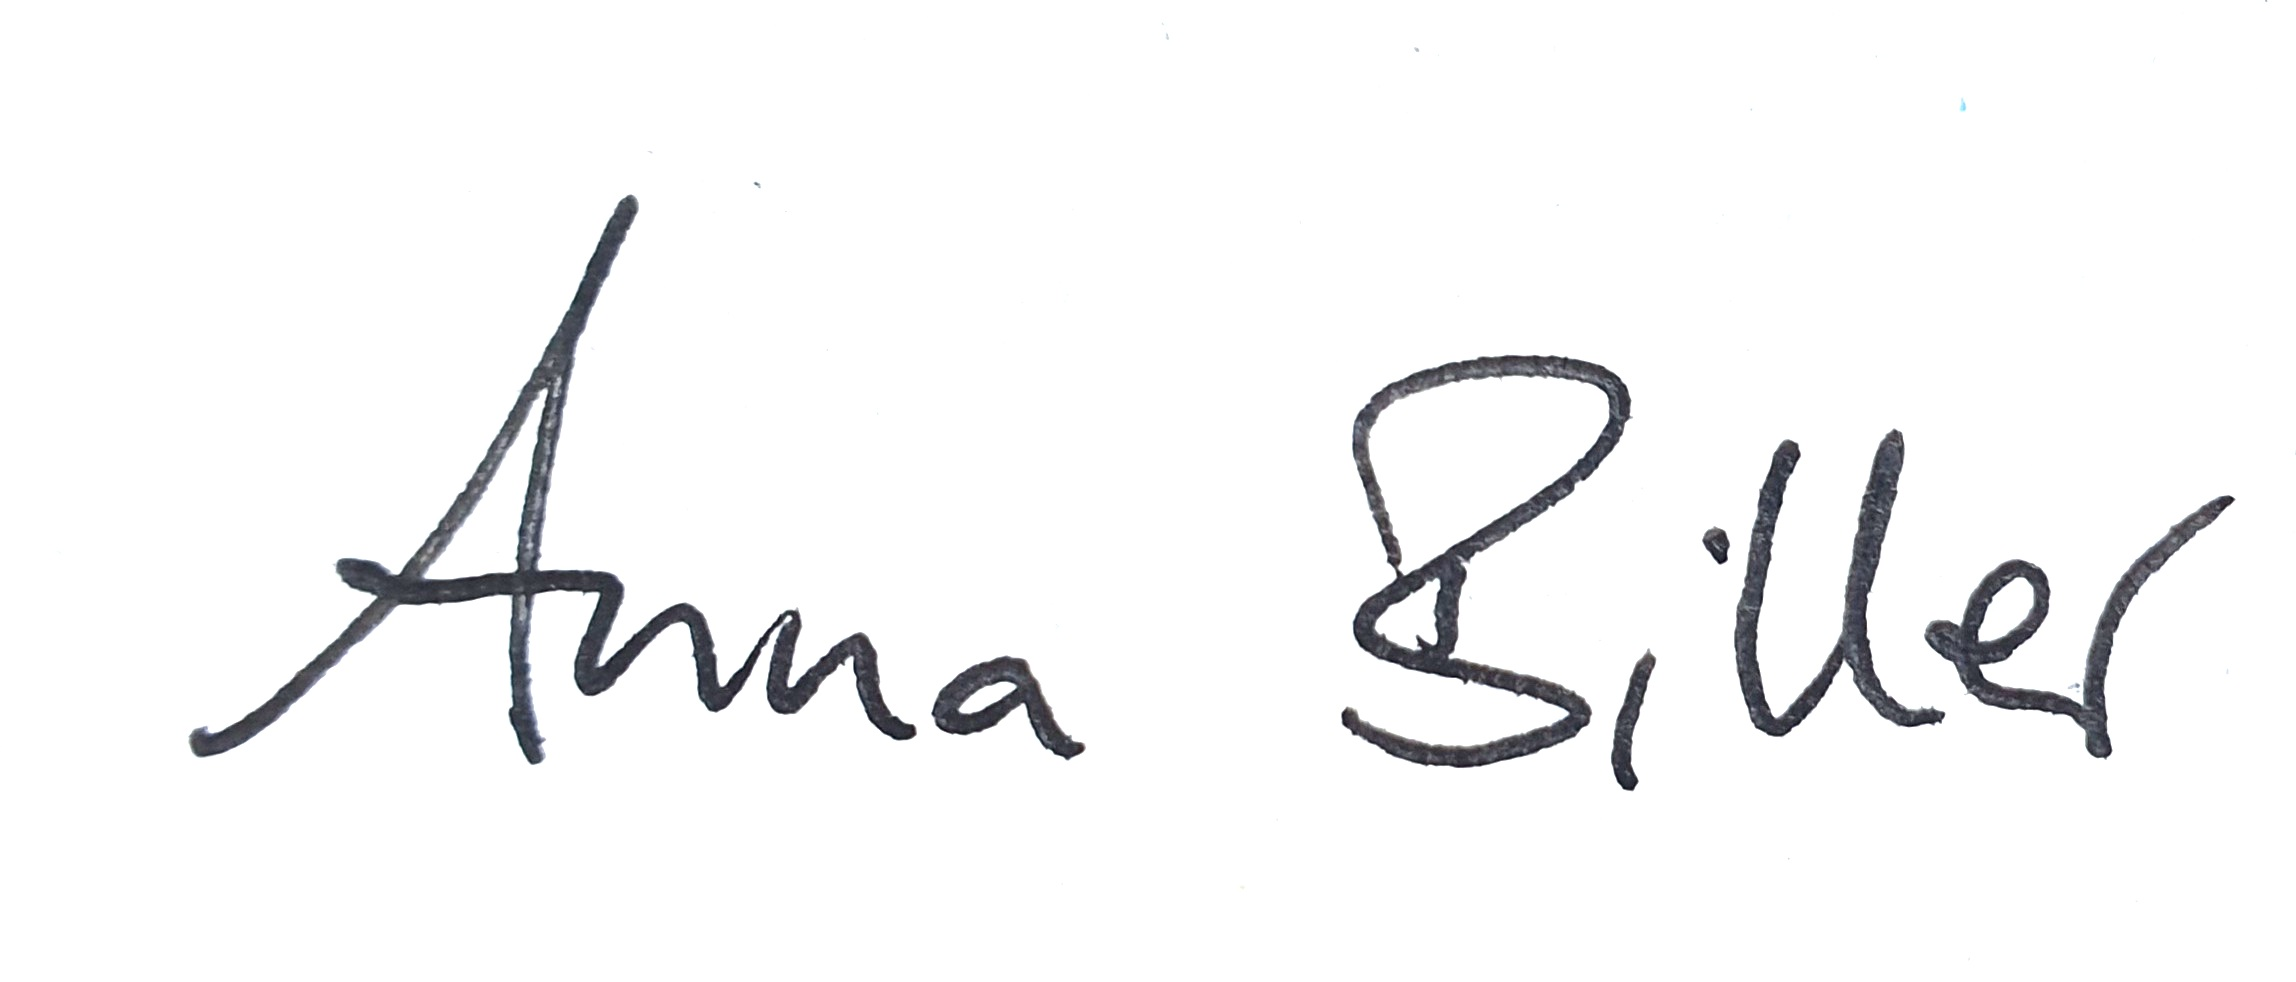 Anna Biller